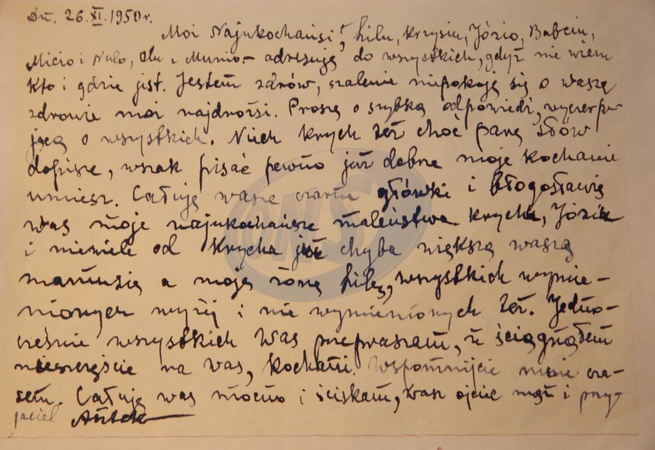 Dn. 26.XI.1950r.
Moi Najukochańsi! Lilu, Krzysiu, Józio, Babciu,
Micio i Nulo, Alu i Munio - adresuję do wszystkich, gdyż nie wiem
kto i gdzie jest. Jestem zdrów, szalenie niepokoję się o wasze
zdrowie moi najdrożsi. Proszę o szybką odpowiedź, wyczerpu-
jącą o wszystkich. Niech Krych też choć parę słów
dopisze, wszak pisać pewno już dobrze moje kochanie
umiesz. Całuję wasze czarne główki i błogosławię
was moje najukochańsze maleństwa Krycha, Józia
i niewiele od Krycha już chyba większą waszą
mamusię a moją żonę Lilę, wszystkich wymie-
nionych wyżej i nie wymienionych też. Jedno-
cześnie wszystkich Was przepraszam, że ściągnąłem
nieszczęście na was, kochani wspomnijcie mnie cza-
sem. Całuję was mocno i ściskam, wasz ojciec mąż i przy-
jaciel Antek